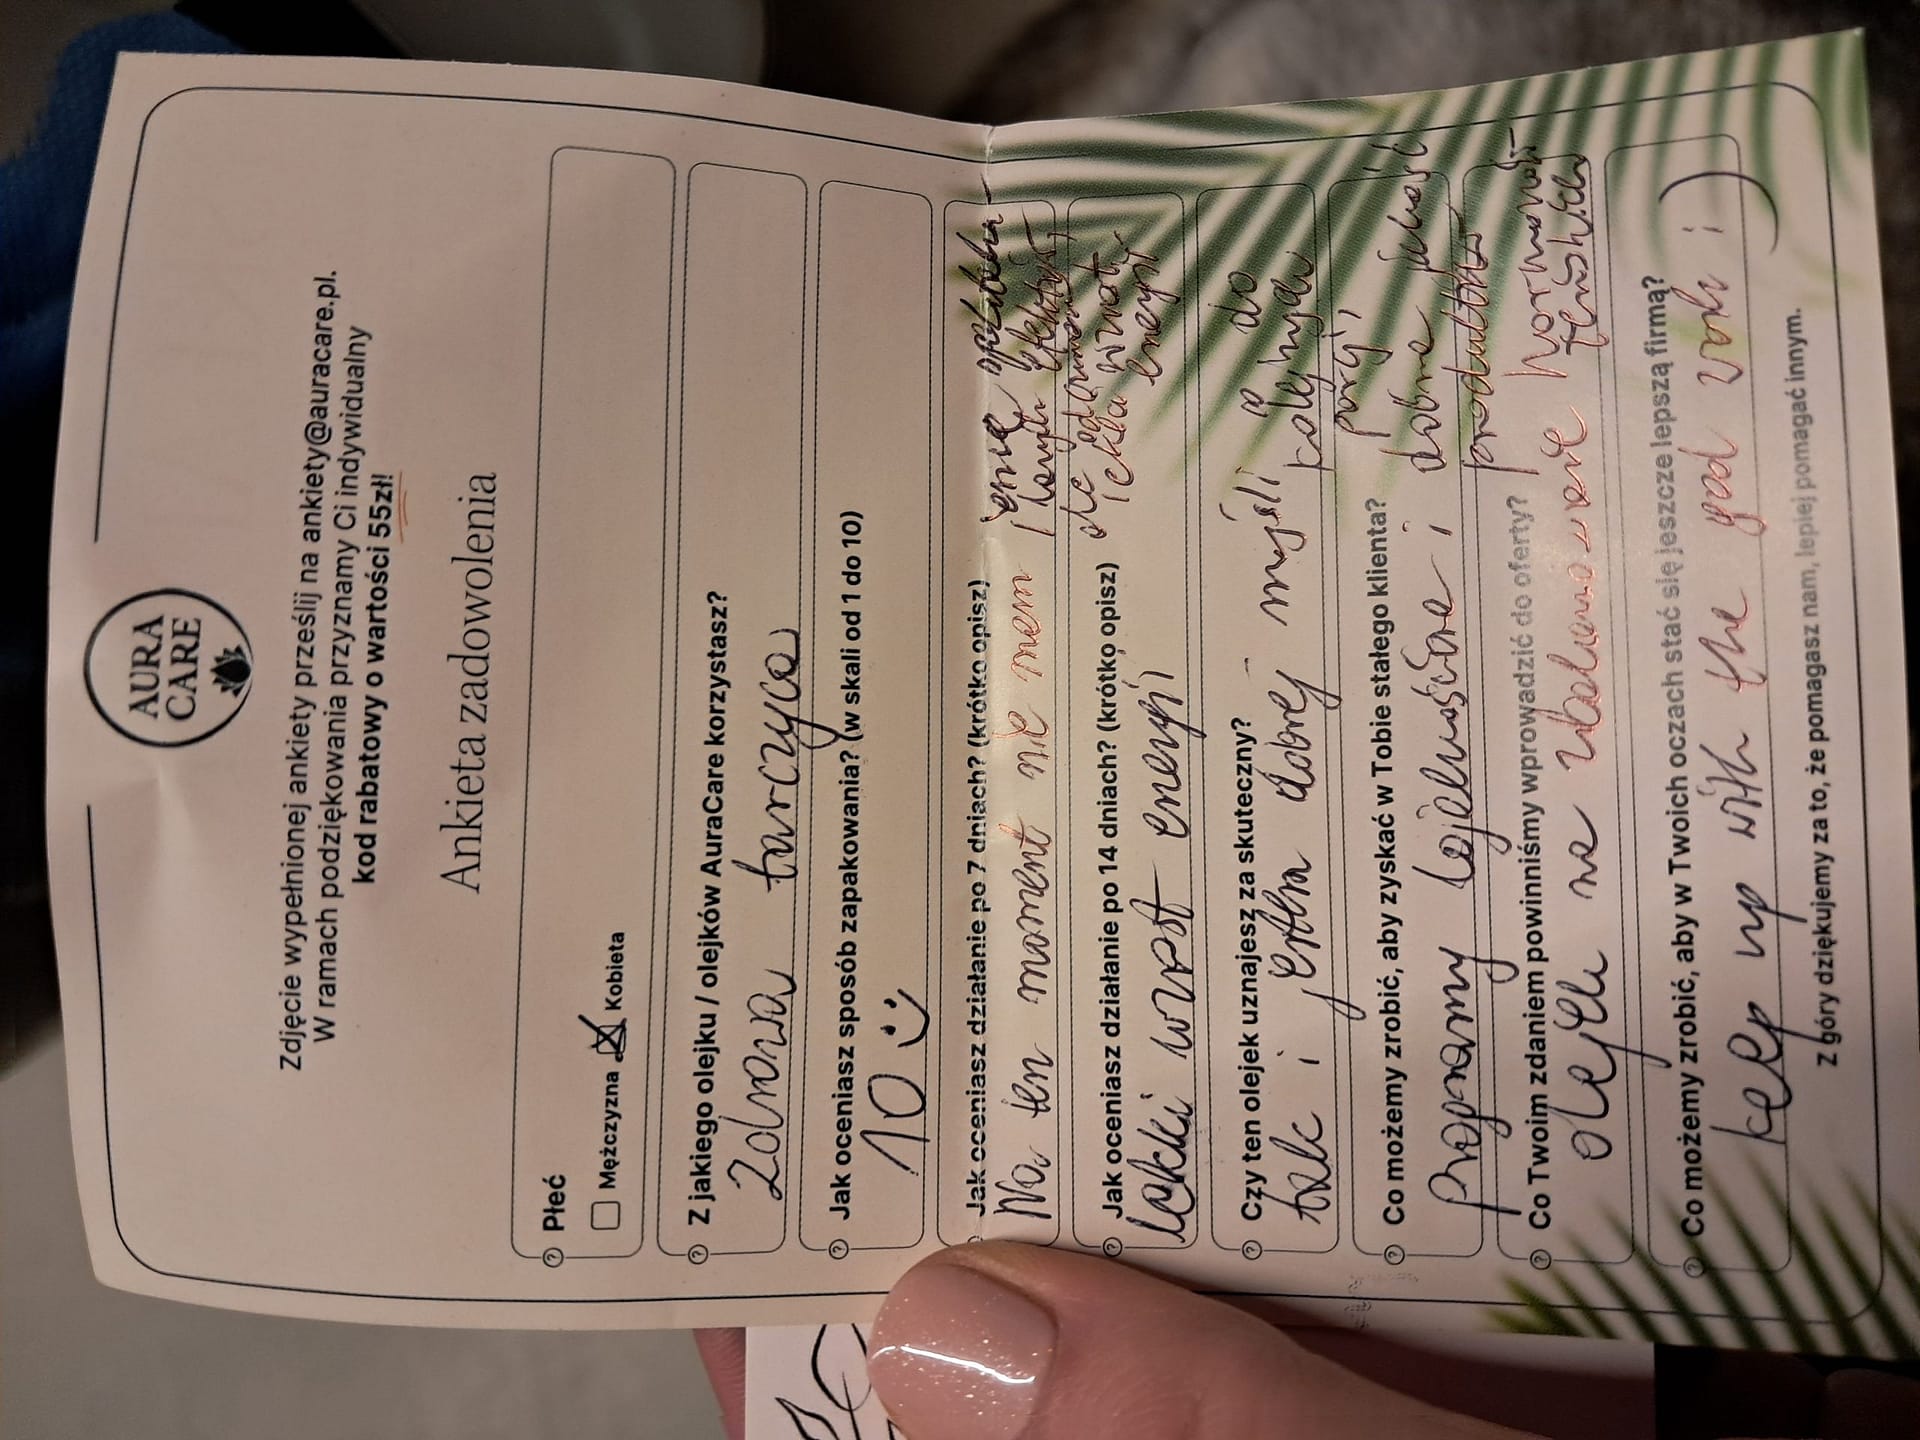 AURA
CARE
Zdjęcie wypełnionej ankiety prześlij na ankiety@auracare.pl.
W ramach podziękowania przyznamy Ci indywidualny
kod rabatowy o wartości 55zł!
Ankieta zadowolenia
Płeć
Mężczyzna Kobieta
Z jakiego olejku / olejków AuraCare korzystasz?
Zdrowa tarczyca
Jak oceniasz sposób zapakowania? (w skali od 1 do 10)
10
Jak oceniasz działanie po 7 dniach? (krótko opisz)
Na ten moment nie mam
Jak oceniasz działanie po 14 dniach? (krótko opisz)
lekki wzrost energii
Czy ten olejek uznajesz za skuteczny?
tak i jestem dobrej myśli co do
kolejnych
porcji
Co możemy zrobić, aby zyskać w Tobie stałego klienta?
programy lojalnościowe i dobra jakość
produktów
Co Twoim zdaniem powinniśmy wprowadzić do oferty?
olejek na zbalansowanie hormonów
żeńskich
Co możemy zrobić, aby w Twoich oczach stać się jeszcze lepszą firmą?
keep up with the good work :)
Z góry dziękujemy za to, że pomagasz nam, lepiej pomagać innym.